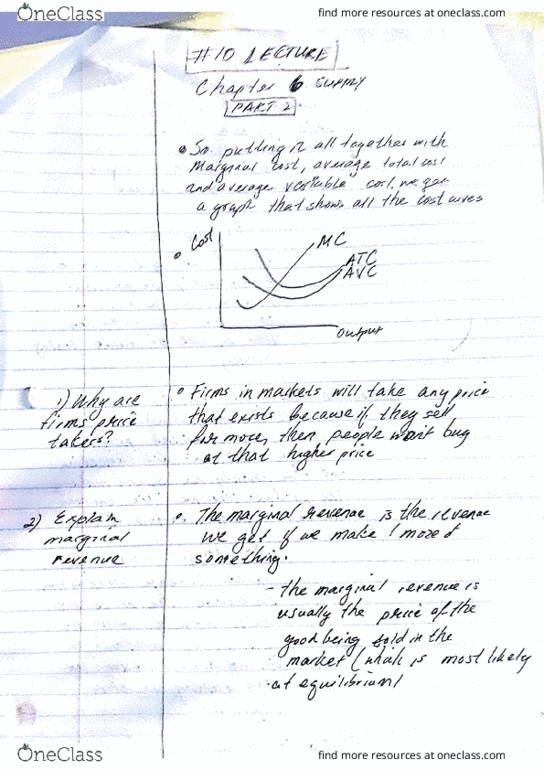 OneClass
find more resources at oneclass.com
#10 LECTURE
Chapter 6 SUPPLY
PART 2
So putting it all together with
Marginal cost, average total cost
and average variable cost, we get
a graph that shows all the cost curves
Cost
MC
ATC
AVC
Output
1) Why are
firms price
takers?
Firms in markets will take any price
that exists because if they sell
for more, then people won't buy
at that higher price
2) Explain
marginal
revenue
The marginal revenue is the revenue
we get if we make 1 more of
something.
- the marginal revenue is
usually the price of the
good being sold in the
market (which is most likely
at equilibrium)
OneClass
find more resources at oneclass.com